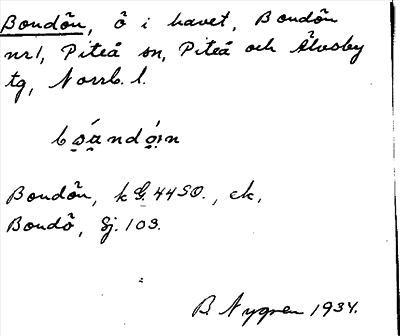 Bondön, ö i havet, Bondön
nr 1, Piteå sn, Piteå och Älvsby
tg, Norrb. l.
Bondön, k G. 4450., ek,
Bondö, Sj. 103.
B. Nygren 1934.